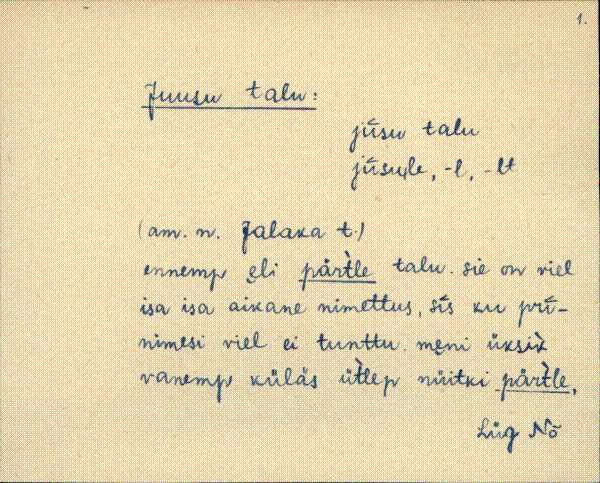 1.
Juusu talu:
jū́su talu
jū́sule, -l, -lt
(am. n. Jalaka t.)
ennemp ęli pärt̀le talu. sie on viel
isa isa aikane nimettus, sī́s ku prī́-
nimesi viel ei tunttu. męni üksik̀
vanemp küläs üt̀lep nüitki pärt̀le,
Lüg Nõ